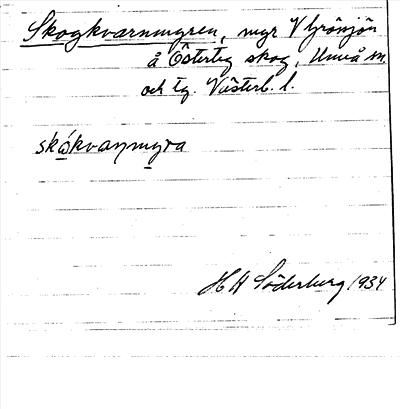 Skogkvarnmyren, myr V Grönsjön
å Österteg skog, Umeå sn
och tg. Västerb. l.
skókvaṇmyra
H H Söderberg 1934